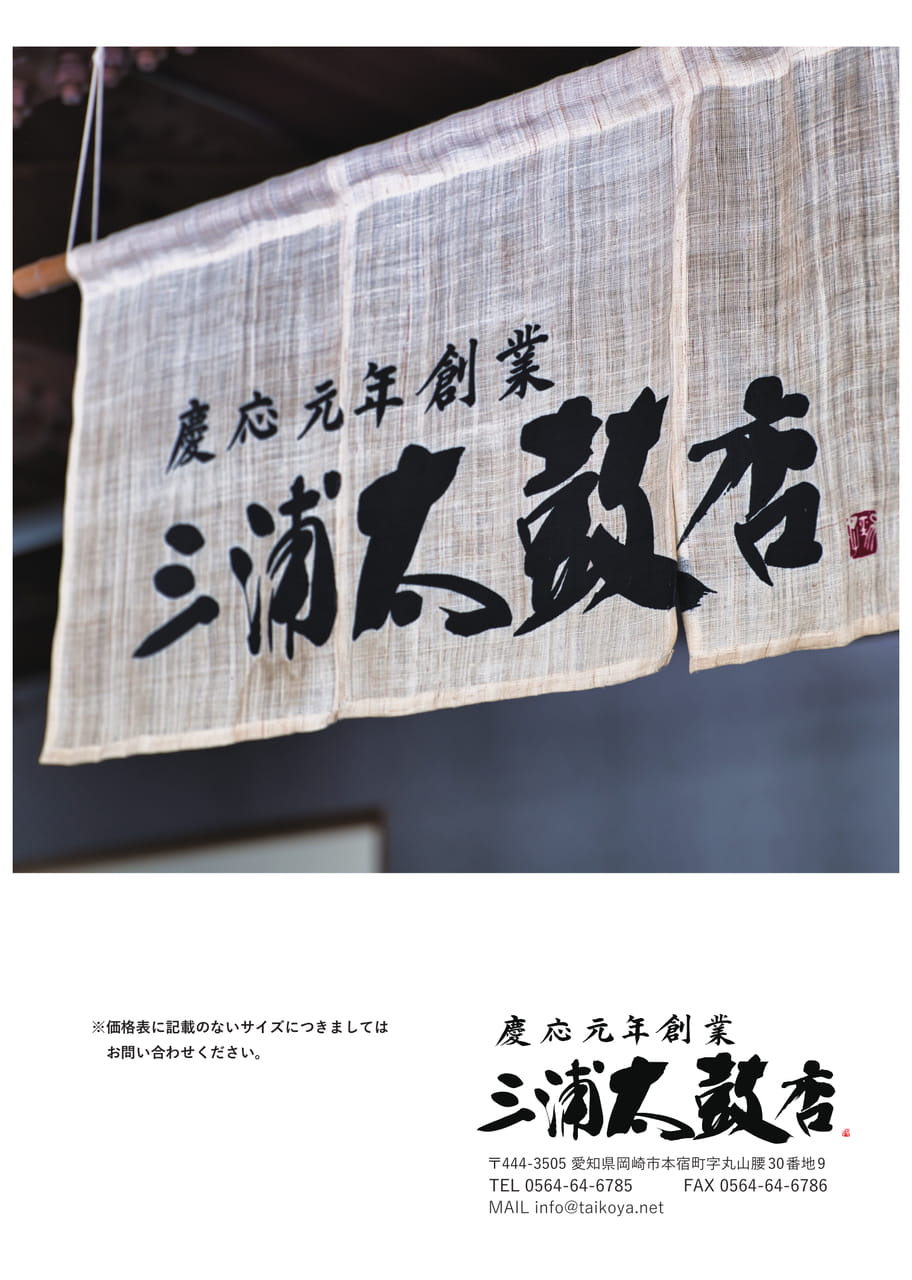 慶応元年創業
三浦太鼓店
※価格表に記載のないサイズにつきましては
お問い合わせください。
慶応元年創業
三浦太鼓店
〒444-3505 愛知県岡崎市本宿町字丸山腰30番地9
TEL 0564-64-6785 FAX 0564-64-6786
MAIL info@taikoya.net